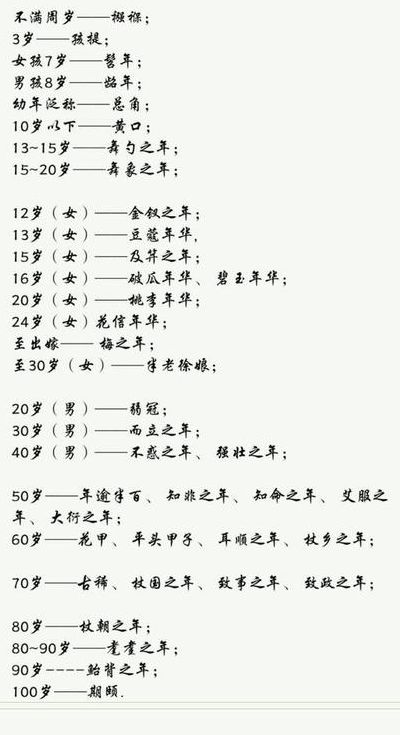 不满周岁——襁褓；
3岁——孩提；
女孩7岁——髫年；
男孩8岁——龆年；
幼年泛称——总角；
10岁以下——黄口；
13~15岁——舞勺之年；
15~20岁——舞象之年；
12岁（女）——金钗之年；
13岁（女）——豆蔻年华,
15岁（女）——及笄之年；
16岁（女）——破瓜年华、碧玉年华；
20岁（女）——桃李年华；
24岁（女）花信年华；
至出嫁——梅之年；
至30岁（女）——半老徐娘；
20岁（男）——弱冠；
30岁（男）——而立之年；
40岁（男）——不惑之年、强壮之年；
50岁——年逾半百、知非之年、知命之年、艾服之
年、大衍之年；
60岁——花甲、平头甲子、耳顺之年、杖乡之年；
70岁——古稀、杖国之年、致事之年、致政之年；
80岁——杖朝之年；
80~90岁——耄耋之年；
90岁----鲐背之年；
100岁——期颐.